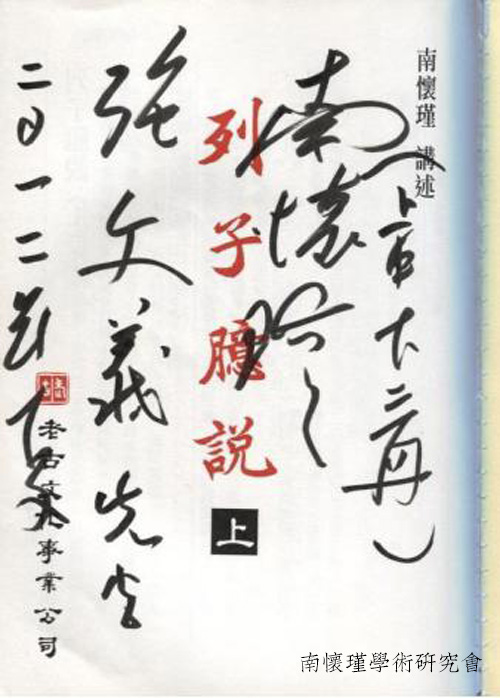 南懷瑾 講述
二冊
南懷
列子臆說 上
張文義先生
二〇一二
老古文化事業公司
南懷瑾學術研究會